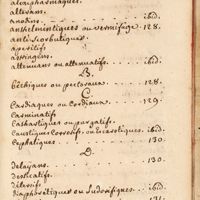 alexipharmaques.
altérans.
anodins. ibid.
anthelmentiques ou vermifuge. 128.
anti-scorbutiques.
apéritifs
astringens.
atténuans ou alternatifs. ibid.
B.
béchiques ou pectoraux. 128.
C.
Cardiaques ou Cordiaux. 129.
Carminatifs
Cathartiques ou purgatifs.
Caustiques Corrosif. ou Escarotiques. ibid.
Céphaliques. 130.
D.
délayans. 130.
dessicatifs.
détersifs. ibid.
diaphorétiques ou Sudorifiques. 131.